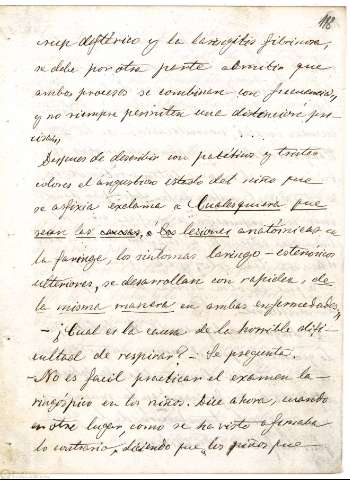 118
crup diftérico y la laringitis fibrinosa,
se debe por otra parte admitir que
ambos procesos se combinan con frecuencia,
y no siempre permiten una distinción pre
cisa,,
Despues de describir con patéticos y tristes
colores el angustioso estado del niño que
se asfixia exclama « Cualesquiera que
sean las causas, ó las lesiones anatómicas de
la faringe, los síntomas laringo-
ulteriores, se desarrollan con rapidez, de
la misma manera en ambas enfermedades,,
- ¿Cual es la causa de la horrible difi
cultad de respirar? - Se pregunta.
- No es facil practicar el examen la-
ringóspico en los niños. Dice ahora, cuando
en otro lugar, como se ha visto afirmaba
lo contrario, diciendo que "los niños que